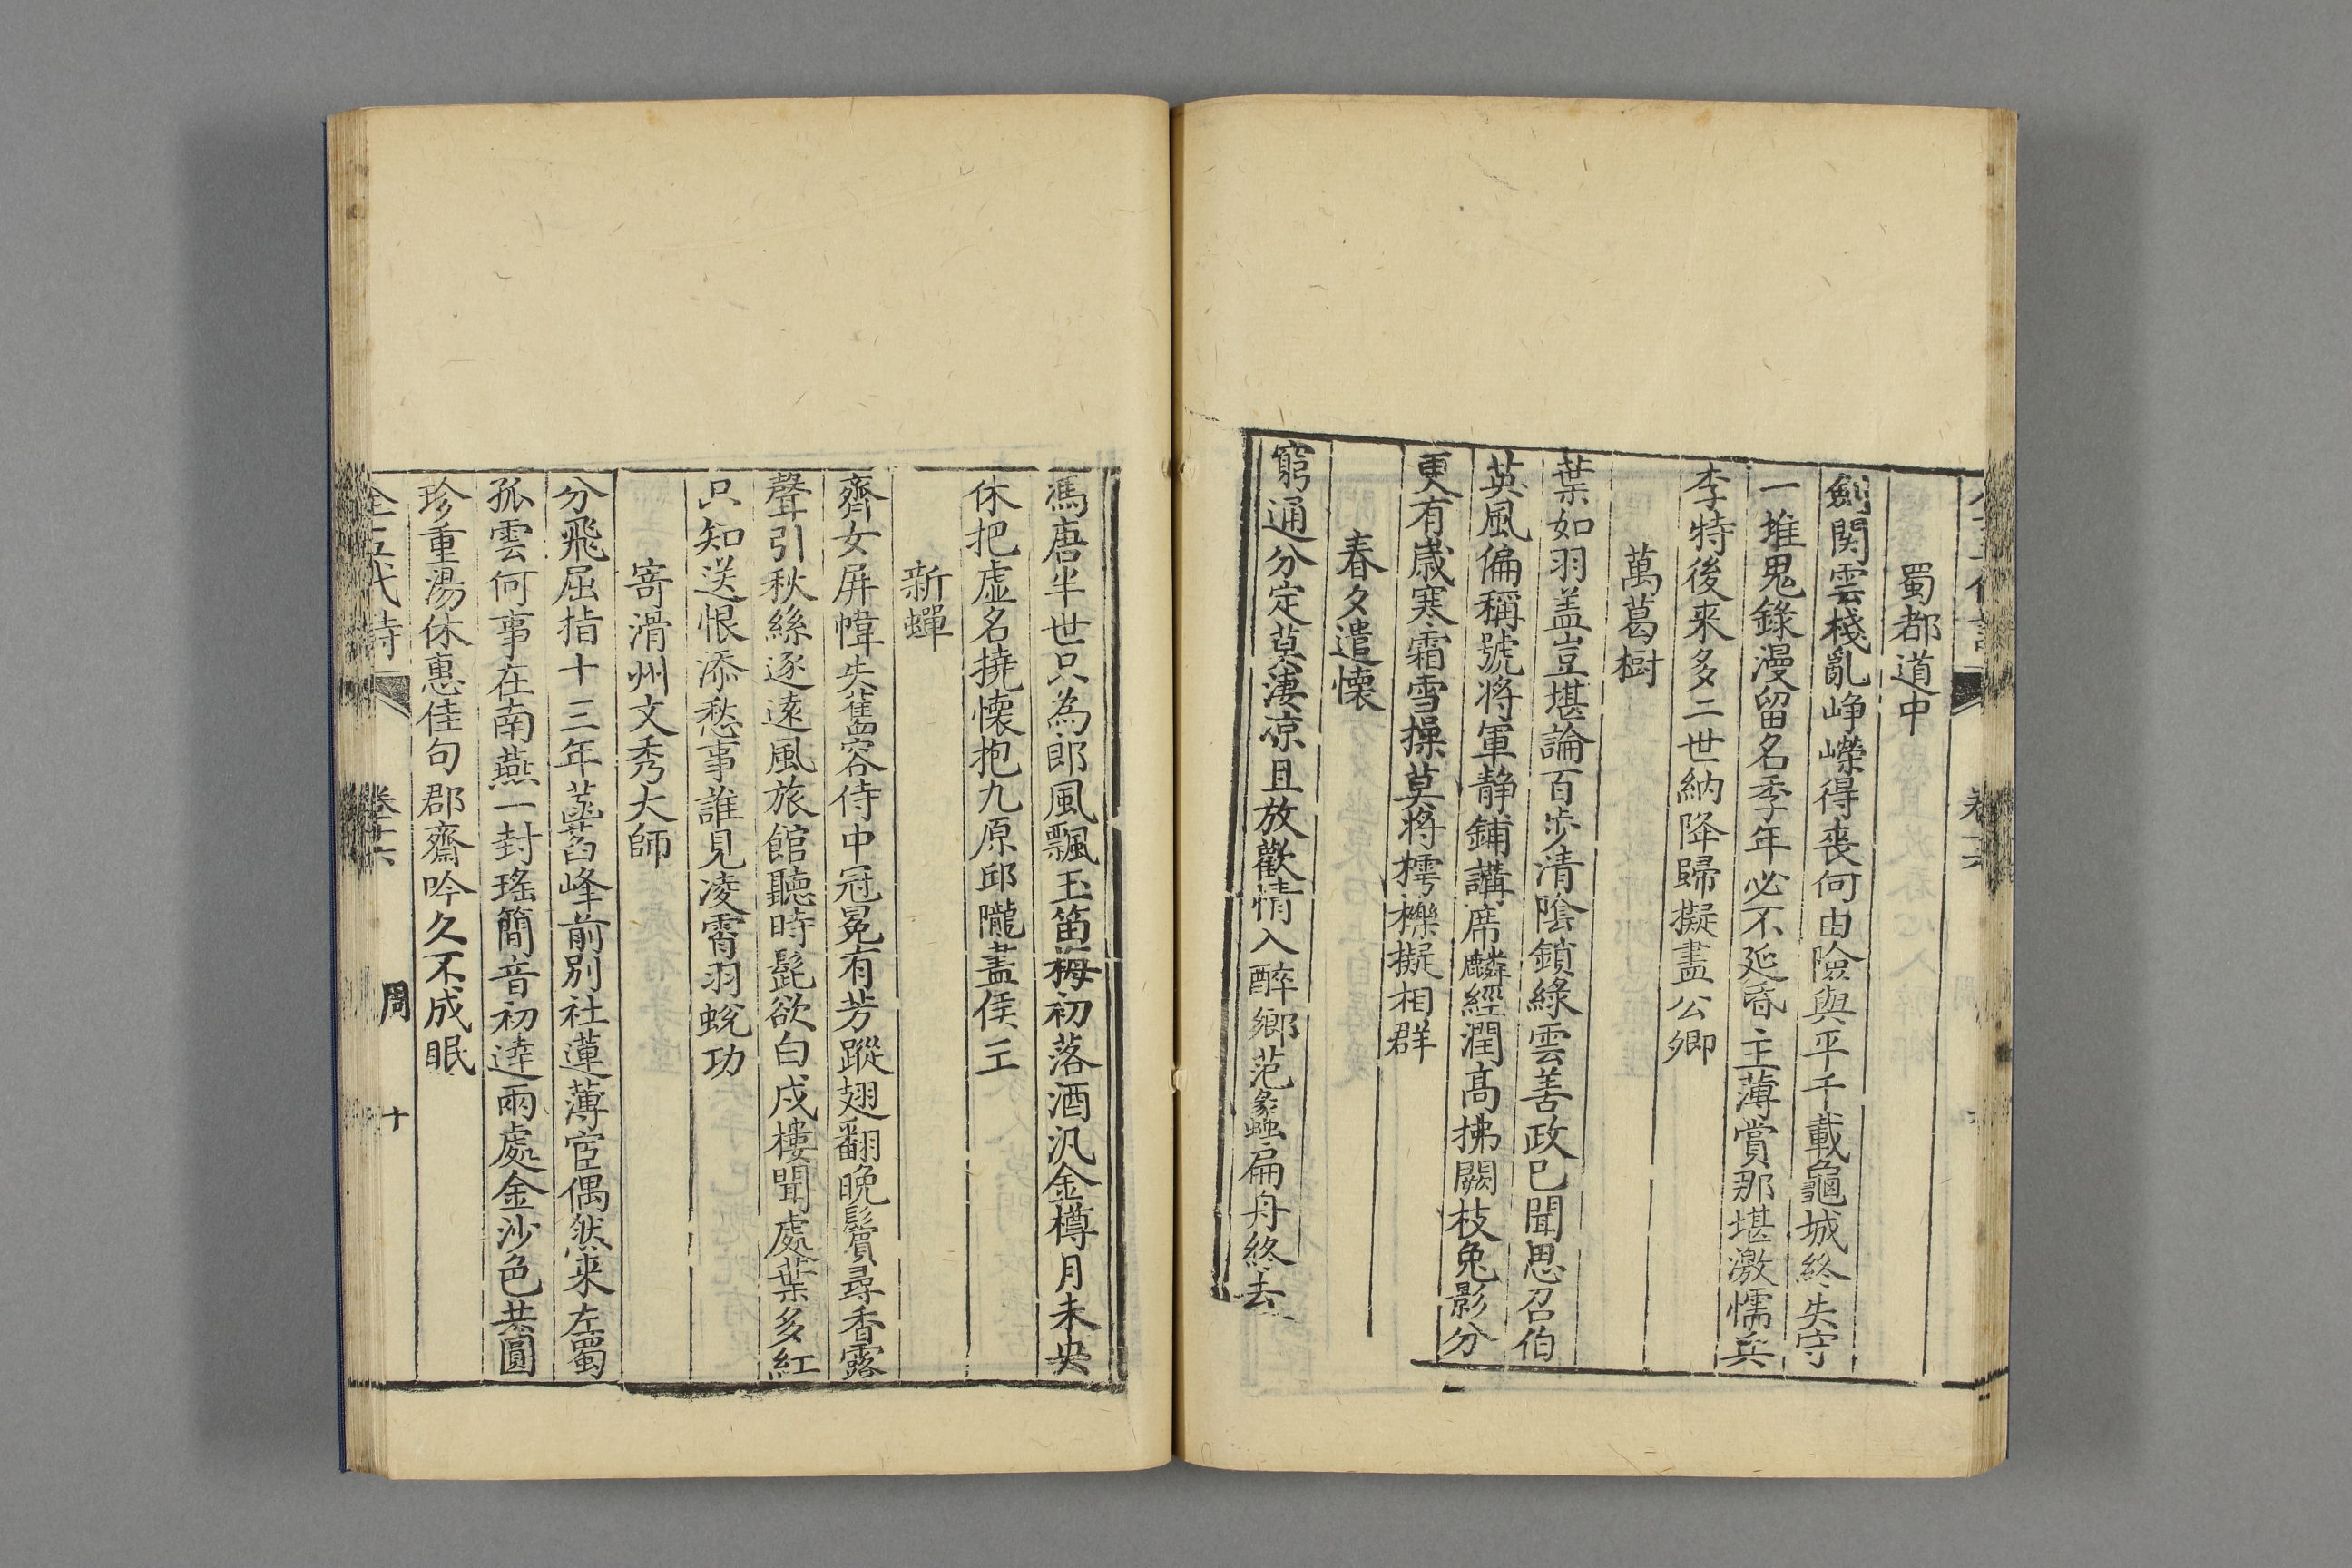 蜀都道中
劍関雲棧亂峥嶸得喪何由險與平千載龜城終失守
一堆鬼錄漫留名季年必不延昏主薄賞那堪激懦兵
李特後来多二世納降歸擬盡公卿
萬葛樹
葉如羽盖豈堪論百步清陰鎖綠雲善政已聞思召伯
英風偏稱號将軍静鋪講席麟經潤髙拂闕枝兔影分
更有歲寒霜雪操莫将樗櫟擬相群
春夕遣懷
窮通分定莫淒凉且放歡情入醉鄉范蠡扁舟終去
馮唐半世只為郎風飄玉笛梅初落酒汎金樽月未央
休把虚名撓懐抱九原邱隴盡侯王
新蟬
齊女屏幃失舊容侍中冠冕有芳蹤翅翻晚鬢尋香露
聲引秋絲逐遠風旅館聽時髭欲白戍樓聞處葉多紅
只知送恨添愁事誰見凌霄羽蛻功
寄滑州文秀大師
分飛屈指十三年菡萏峰前别社蓮薄宦偶然来左蜀
孤雲何事在南燕一封瑤簡音初達兩處金沙色共圓
珍重湯休惠佳句郡齋吟久不成眠
全五代詩 周 十